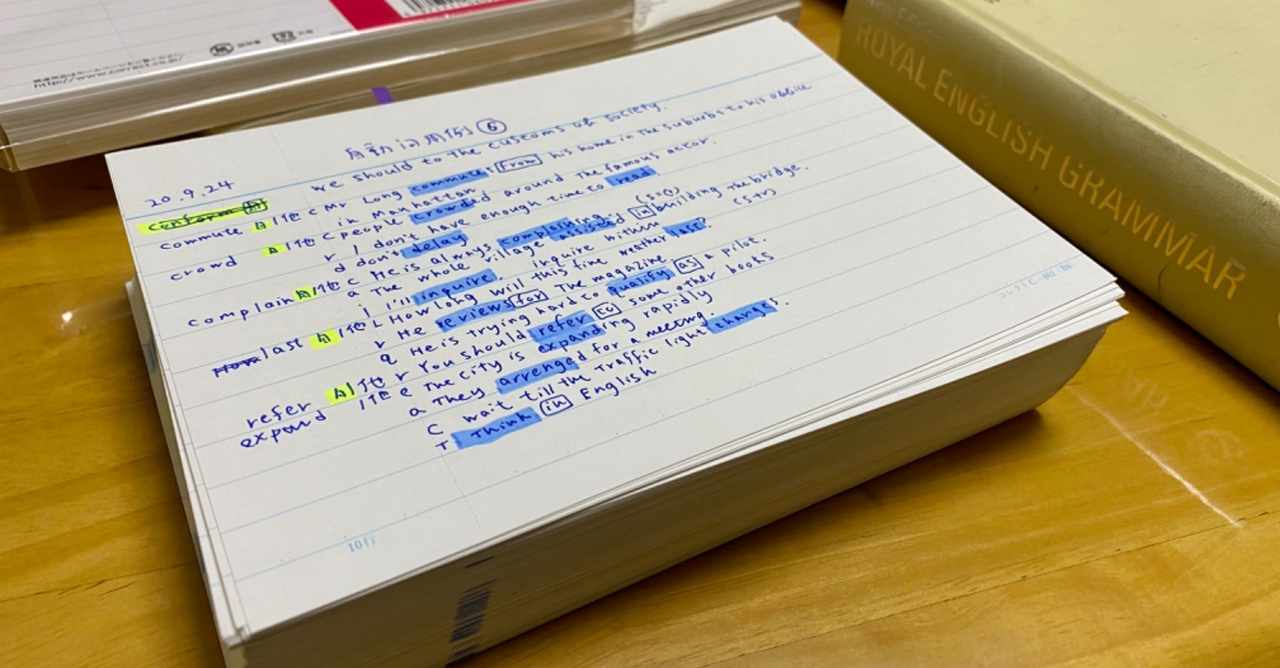 http://www.correct.co.jp/
ROYAL ENGLISH GRAMMAR
自動詞用例⑥
20.9.24
we should to the customs of society.
conform 自
commute 自/他 C Mr Long commutes from his home in the suburbs to his office
in Manhattan
crowd 自/他 C people crowded around the famous actor.
r I don't have enough time to read
d don't delay
complain 自/他 C He is always complaining. (S+V)
a The whole village assisted in building the bridge.
I I'll inquire. inquire within (S+V)
last 自/他 L How long will this fine weather last?
r He reviews for The magazine
q He is trying hard to qualify as a pilot.
refer 自/他 r You should refer to some other books
expand /他 e The city is expanding rapidly
a They arrenged for a meeting.
C wait till the Traffic light changes.
T Think in English